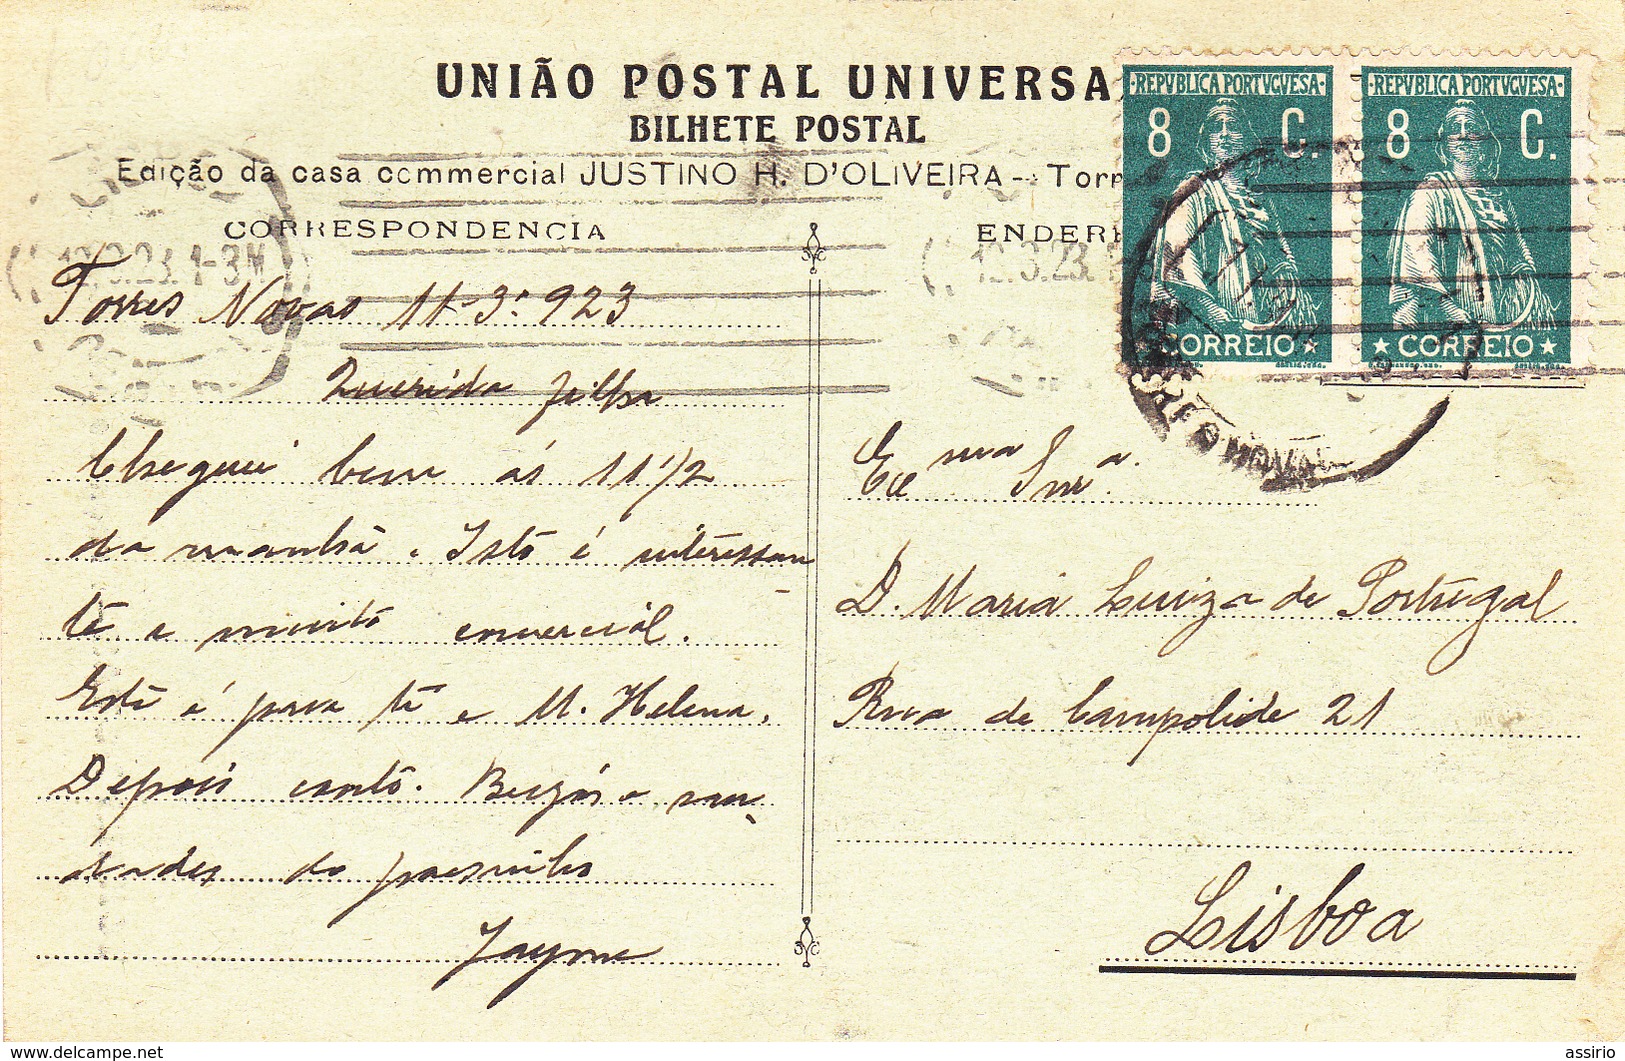 UNIÃO POSTAL UNIVERSA
BILHETE POSTAL
Edição da casa commercial JUSTINO H. D'OLIVEIRA -- Torr
CORRESPONDENCIA
ENDERE
REPVBLICA PORTVGVESA
8 C.
CORREIO
REPVBLICA PORTVGVESA
8 C.
CORREIO
12.3.23. 1-3M
12.3.23.
Torres Novas 11-3-923
Querida filha
Cheguei bem ás 11 1/2
da manhã. Isto é interessan
te e muito comercial.
Este é para ti e M. Helena.
Depois conto. Beijos e sau-
dades do paesinho
Jayme
Exma Snra.
D. Maria Luiza de Portugal
Rua de Campolide 21
Lisboa
assirio
delcampe.net